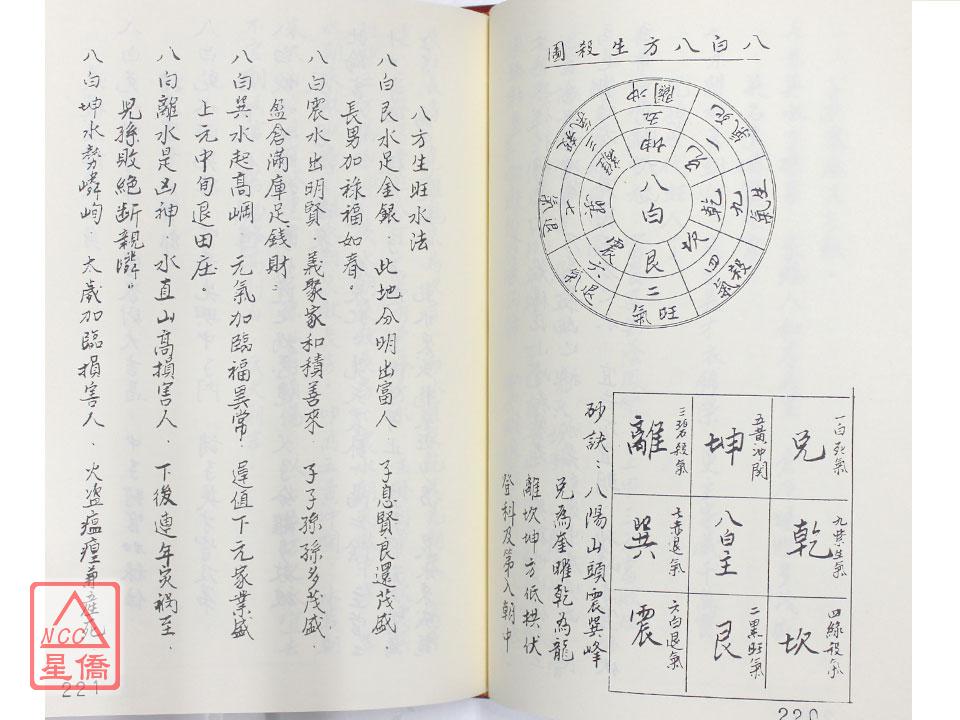 八白八方生殺圖
八白
坤
兌
乾
坎
艮
震
巽
離
五
一
九
四
二
六
七
三
關冲
死氣
生氣
殺氣
旺氣
退氣
退氣
殺氣
兌
一白死氣
坤
五黃冲関
離
三碧殺氣
乾
九紫生氣
八白主
巽
七赤退氣
坎
四綠殺氣
艮
二黑旺氣
震
六白退氣
砂訣：八陽山頭震巽峰
兌為奎曜乾為龍
離坎坤方低拱伏
登科及第入朝中
220
八方生旺水法
八白艮水足金銀．此地分明出富人．子息賢良還茂盛．
長男加祿福如春。
八白震水出明賢．義聚家和積善來．子子孫孫多茂盛．
盈倉滿庫足錢財．
八白巽水起高崗．元氣加臨福異常．運值下元家業盛
上元中旬退田庄。
八白離水是凶神．水直山高損害人．下後連年灾禍至．
兒孫敗絕斷親隣。
八白坤水勢嶙峋．太歲加臨損害人．火盗瘟瘟兼產死
221
NCC
星僑